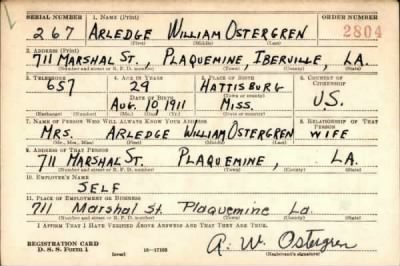 SERIAL NUMBER 1. NAME (Print) ORDER NUMBER
267 ARLEDGE WILLIAM OSTERGREN 2804
(First) (Middle) (Last)
2. ADDRESS (Print)
711 MARSHAL ST., PLAQUEMINE, IBERVILLE, LA.
(Number and street or R. F. D. number) (Town) (County) (State)
3. TELEPHONE 4. AGE IN YEARS 5. PLACE OF BIRTH 6. COUNTRY OF CITIZENSHIP
657 29 HATTISBURG
DATE OF BIRTH (Town or county)
AUG. 10, 1911 MISS. U.S.
(Exchange) (Number) (Mo.) (Day) (Yr.) (State or country)
7. NAME OF PERSON WHO WILL ALWAYS KNOW YOUR ADDRESS 8. RELATIONSHIP OF THAT PERSON
MRS. ARLEDGE WILLIAM OSTERGREN WIFE
(Mr., Mrs., Miss) (First) (Middle) (Last)
9. ADDRESS OF THAT PERSON
711 MARSHAL ST. PLAQUEMINE, LA.
(Number and street or R. F. D. number) (Town) (County) (State)
10. EMPLOYER'S NAME
SELF
11. PLACE OF EMPLOYMENT OR BUSINESS
711 Marshal St. Plaquemine La.
(Number and street or R. F. D. number) (Town) (County) (State)
I AFFIRM THAT I HAVE VERIFIED ABOVE ANSWERS AND THAT THEY ARE TRUE.
REGISTRATION CARD
D. S. S. Form 1 (over) 16—17105 A. W. Ostergren
(Registrant's signature)